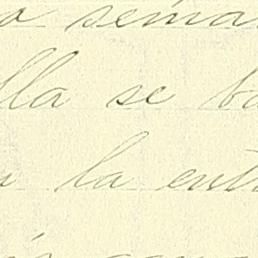 o sema
lla se ba
la ent